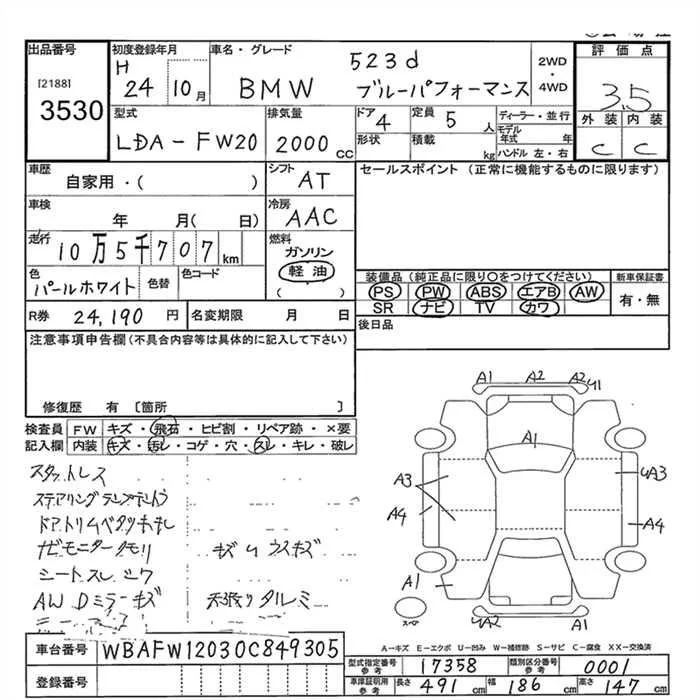 出品番号
[2188]
3530
初度登録年月
H 24 10月
車名・グレード
BMW
523d
ブルーパフォーマンス
2WD
・
4WD
評価点
3.5
外装 内装
C C
型式
LDA-FW20
排気量
2000cc
ドア 4
形状
定員 5人
積載 kg
ディーラー・並行
モデル年式 年
ハンドル 左・右
車歴
自家用・( )
シフト AT
セールスポイント(正常に機能するものに限ります)
車検
年 月( 日)
冷房 AAC
走行
10万5千707km
燃料
ガソリン
軽油
( )
色
パールホワイト
色替
色コード
装備品(純正品に限り○をつけてください)
PS PW ABS エアB AW
SR ナビ TV カワ
新車保証書
有・無
R券 24,190円
名変期限 月 日
後日品
注意事項申告欄(不具合内容等は具体的に記入して下さい)
修復歴 有 [箇所 ]
検査員 FW キズ・飛石・ヒビ割・リペア跡・×要
記入欄 内装 キズ・汚レ・コゲ・穴・スレ・キレ・破レ
スタットレス
ドアトリムベタツキ
ナビモニタークモリ
キズ
ウスキズ
シートスレシワ
AW Dミラーキズ
天張りタルミ
A1 A2 A2 U1
A1
A3
A4
UA3
A4
A1
UA2 A1
スペア
A-キズ E-エクボ U-凹み W-補修跡 S-サビ C-腐食 XX-交換済
車台番号 WBAFW12030C849305
登録番号
型式指定番号参考 17358
類別区分番号参考 0001
車庫証明用参考 長さ 491cm 幅 186cm 高さ 147cm